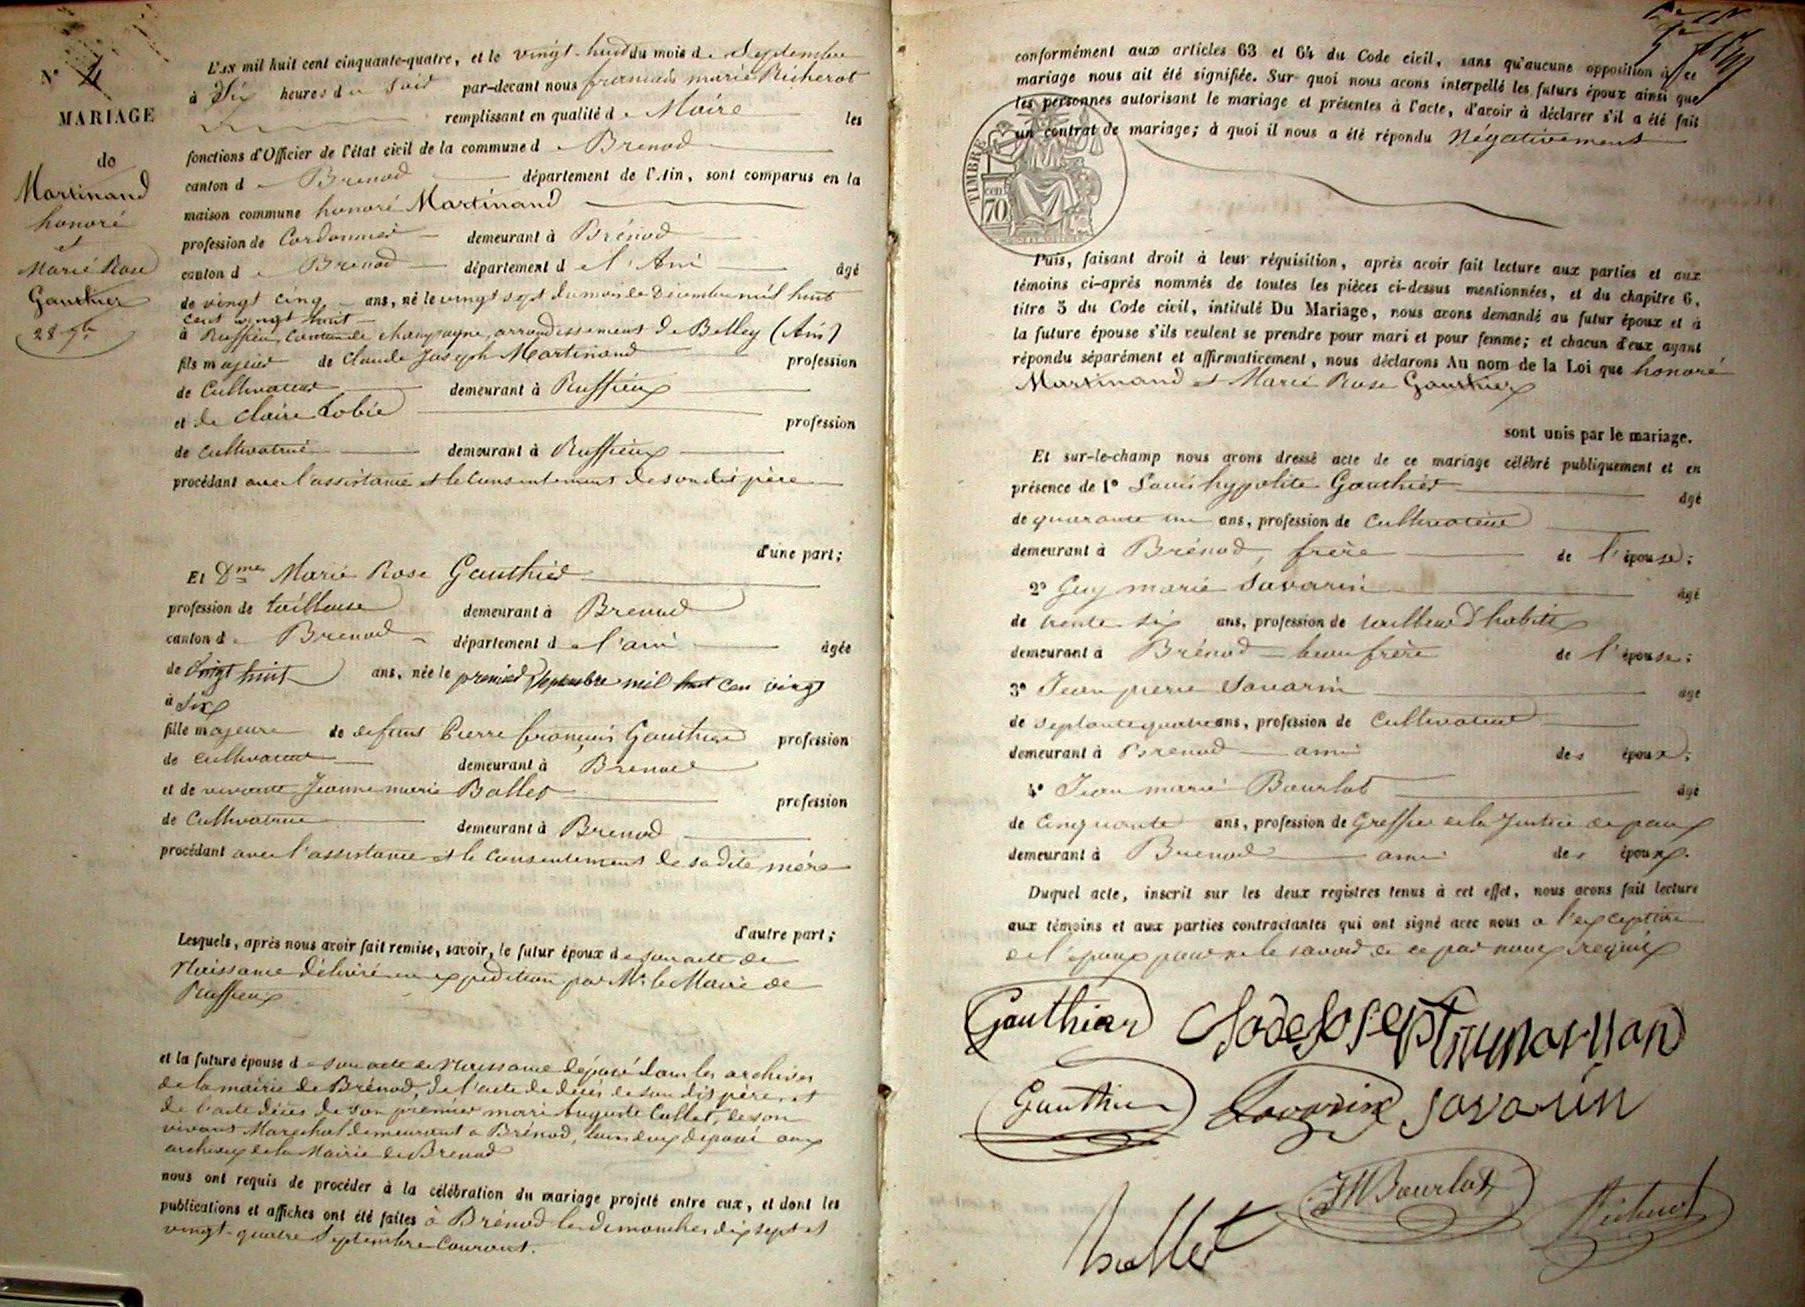 N° 4
MARIAGE
de
Martinand
honoré
et
Marie Rose
Gauthier
28 7bre
L'AN mil huit cent cinquante-quatre, et le vingt-huit du mois de Septembre
à Six heures du Soir par-devant nous françois marie Richerot
remplissant en qualité de Maire les
fonctions d'Officier de l'état civil de la commune de Brenod
canton de Brenod département de l'Ain, sont comparus en la
maison commune honoré Martinand
profession de Cordonnier demeurant à Brénod
canton de Brenod département de l'Ain âgé
de vingt cinq ans, né le vingt sept du mois de Décembre mil huit
cent vingt huit
à Ruffieu, Canton de champagne, arrondissement de Belley (Ain)
fils majeur de Claude Joseph Martinand profession
de Cultivateur demeurant à Ruffieux
et de Claire Lobie profession
de cultivatrice demeurant à Ruffieux
procédant avec l'assistance et le Consentement de son dit père
d'une part;
Et Dme Marie Rose Gauthier
profession de tailleuse demeurant à Brenod
canton de Brenod département de l'ain âgée
de vingt huit ans, née le premier Septembre mil huit cent vingt
à Six
fille majeure de défunt Pierre françois Gauthier profession
de cultivateur demeurant à Brenod
et de vivante Jeanne marie Ballet profession
de Cultivatrice demeurant à Brenod
procédant avec l'assistance et le Consentement de sa dite mère
d'autre part;
Lesquels, après nous avoir fait remise, savoir, le futur époux de son acte de
Naissance délivré en expédition par Mr le Maire de
Ruffieux
et la future épouse de son acte de Naissance déposé dans les archives
de la mairie de Brénod, de l'acte de décès de son dit père, et
de l'acte décès de son premier mari Auguste Collet, de son
vivant Marechal demeurant à Brénod, tous deux déposé aux
archives de la Mairie de Brenod
nous ont requis de procéder à la célébration du mariage projeté entre eux, et dont les
publications et affiches ont été faites à Brénod les dimanches dix sept et
vingt-quatre Septembre Courant.
conformément aux articles 63 et 64 du Code civil, sans qu'aucune opposition à ce
mariage nous ait été signifiée. Sur quoi nous avons interpellé les futurs époux ainsi que
les personnes autorisant le mariage et présentes à l'acte, d'avoir à déclarer s'il a été fait
un contrat de mariage; à quoi il nous a été répondu Négativement
TIMBRE
cent
70
Puis, faisant droit à leur réquisition, après avoir fait lecture aux parties et aux
témoins ci-après nommés de toutes les pièces ci-dessus mentionnées, et du chapitre 6,
titre 5 du Code civil, intitulé Du Mariage, nous avons demandé au futur époux et à
la future épouse s'ils veulent se prendre pour mari et pour femme; et chacun d'eux ayant
répondu séparément et affirmativement, nous déclarons Au nom de la Loi que honoré
Martinand et Marie Rose Gauthier
sont unis par le mariage.
Et sur-le-champ nous avons dressé acte de ce mariage célébré publiquement et en
présence de 1° Louis hypolite Gauthier âgé
de quarante un ans, profession de Cultivateur
demeurant à Brénod, frère de l'épouse;
2° Guy marie Savarin âgé
de trente six ans, profession de tailleur d'habits
demeurant à Brénod beau frère de l'épouse;
3° Jean pierre Savarin âgé
de septante quatre ans, profession de Cultivateur
demeurant à Brenod ami des époux;
4° Jean marie Bourlot âgé
de Cinquante ans, profession de Greffier de la Justice de paix
demeurant à Brenod ami des époux.
Duquel acte, inscrit sur les deux registres tenus à cet effet, nous avons fait lecture
aux témoins et aux parties contractantes qui ont signé avec nous a l'exception
de l'époux pour ne le savoir de ce par nous requis
Gauthier
Gauthier Savarin Savarin
JM Bourlot Richerot
Ballet